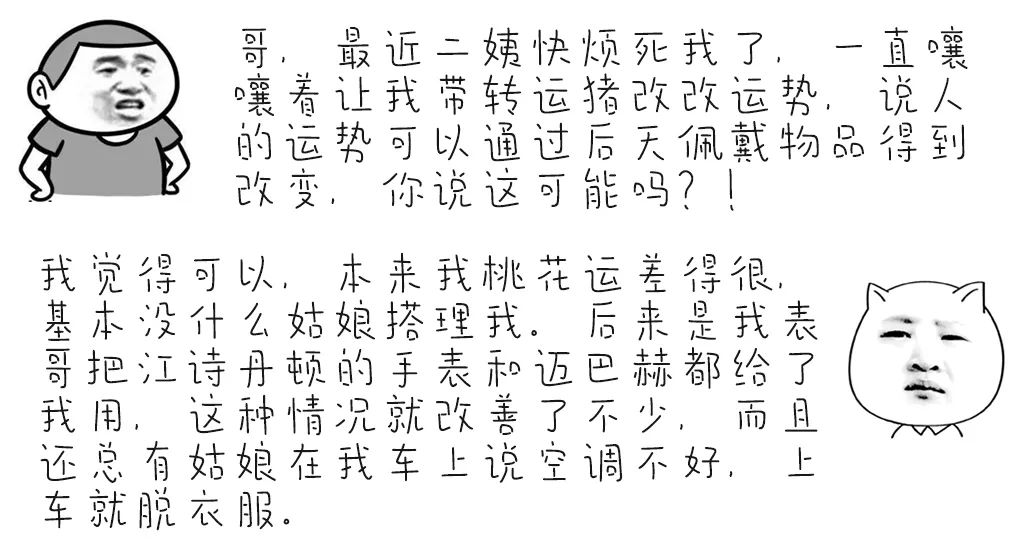 哥，最近二姨快烦死我了，一直嚷
嚷着让我带转运猪改改运势，说人
的运势可以通过后天佩戴物品得到
改变，你说这可能吗？！
我觉得可以，本来我桃花运差得很，
基本没什么姑娘搭理我。后来是我表
哥把江诗丹顿的手表和迈巴赫都给了
我用，这种情况就改善了不少，而且
还总有姑娘在我车上说空调不好，上
车就脱衣服。